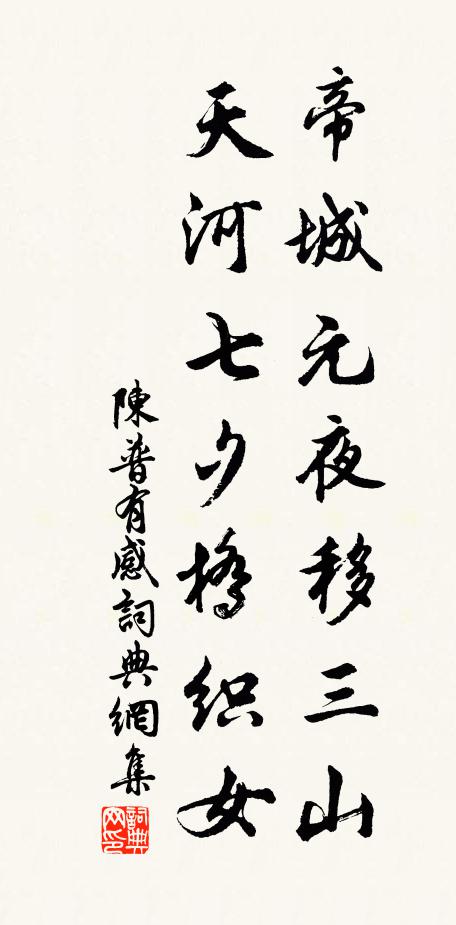 帝城元夜移三山
天河七夕橋织女
陳普有感詞典網集
詞典网印